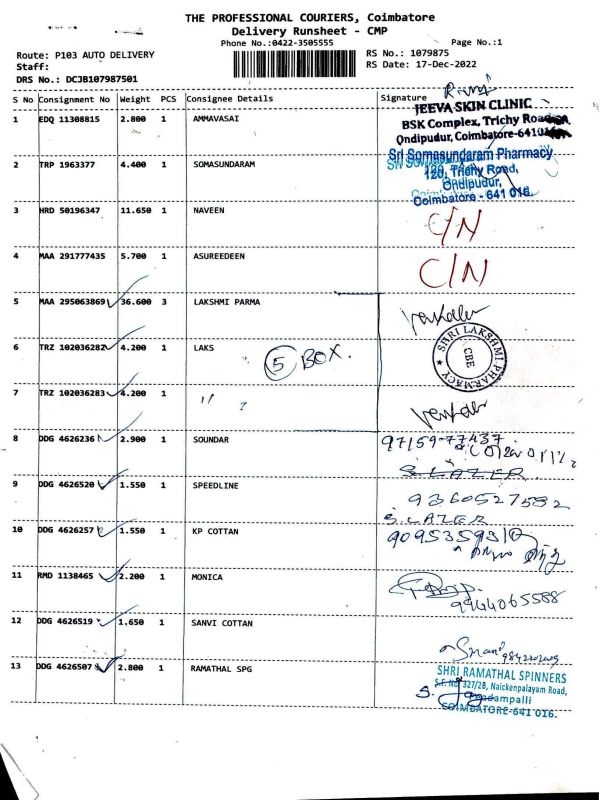 THE PROFESSIONAL COURIERS, Coimbatore
Delivery Runsheet - CMP
Phone No.:0422-3505555
Page No.:1
Route: P103 AUTO DELIVERY
RS No.: 1079875
Staff:
RS Date: 17-Dec-2022
DRS No.: DCJB107987501
S No Consignment No Weight PCS Consignee Details Signature
1 EDQ 11308815 2.800 1 AMMAVASAI
JEEVA SKIN CLINIC
BSK Complex, Trichy Road
Ondipudur, Coimbatore-641016
2 TRP 1963377 4.400 1 SOMASUNDARAM
Sri Somasundaram Pharmacy
120, Trichy Road,
Ondipudur,
Coimbatore - 641 016.
3 HRD 50196347 11.650 1 NAVEEN
C/N
4 MAA 291777435 5.700 1 ASUREDEEN
C/N
5 MAA 295063869 36.600 3 LAKSHMI PARMA
6 TRZ 102036282 4.200 1 LAKS
5 BOX.
SHRI LAKSHMI PHARMACY
CBE
7 TRZ 102036283 4.200 1 "
8 DDG 4626236 2.900 1 SOUNDAR
97159-77437
S. LAZER
9 DDG 4626520 1.550 1 SPEEDLINE
9360527582
S. LAZER
10 DDG 4626257 1.550 1 KP COTTAN
11 RMD 1138465 2.200 1 MONICA
9944065588
12 DDG 4626519 1.650 1 SANVI COTTAN
13 DDG 4626507 2.800 1 RAMATHAL SPG
SHRI RAMATHAL SPINNERS
S.F. No. 327/2B, Naickenpalayam Road,
COIMBATORE-641 016.